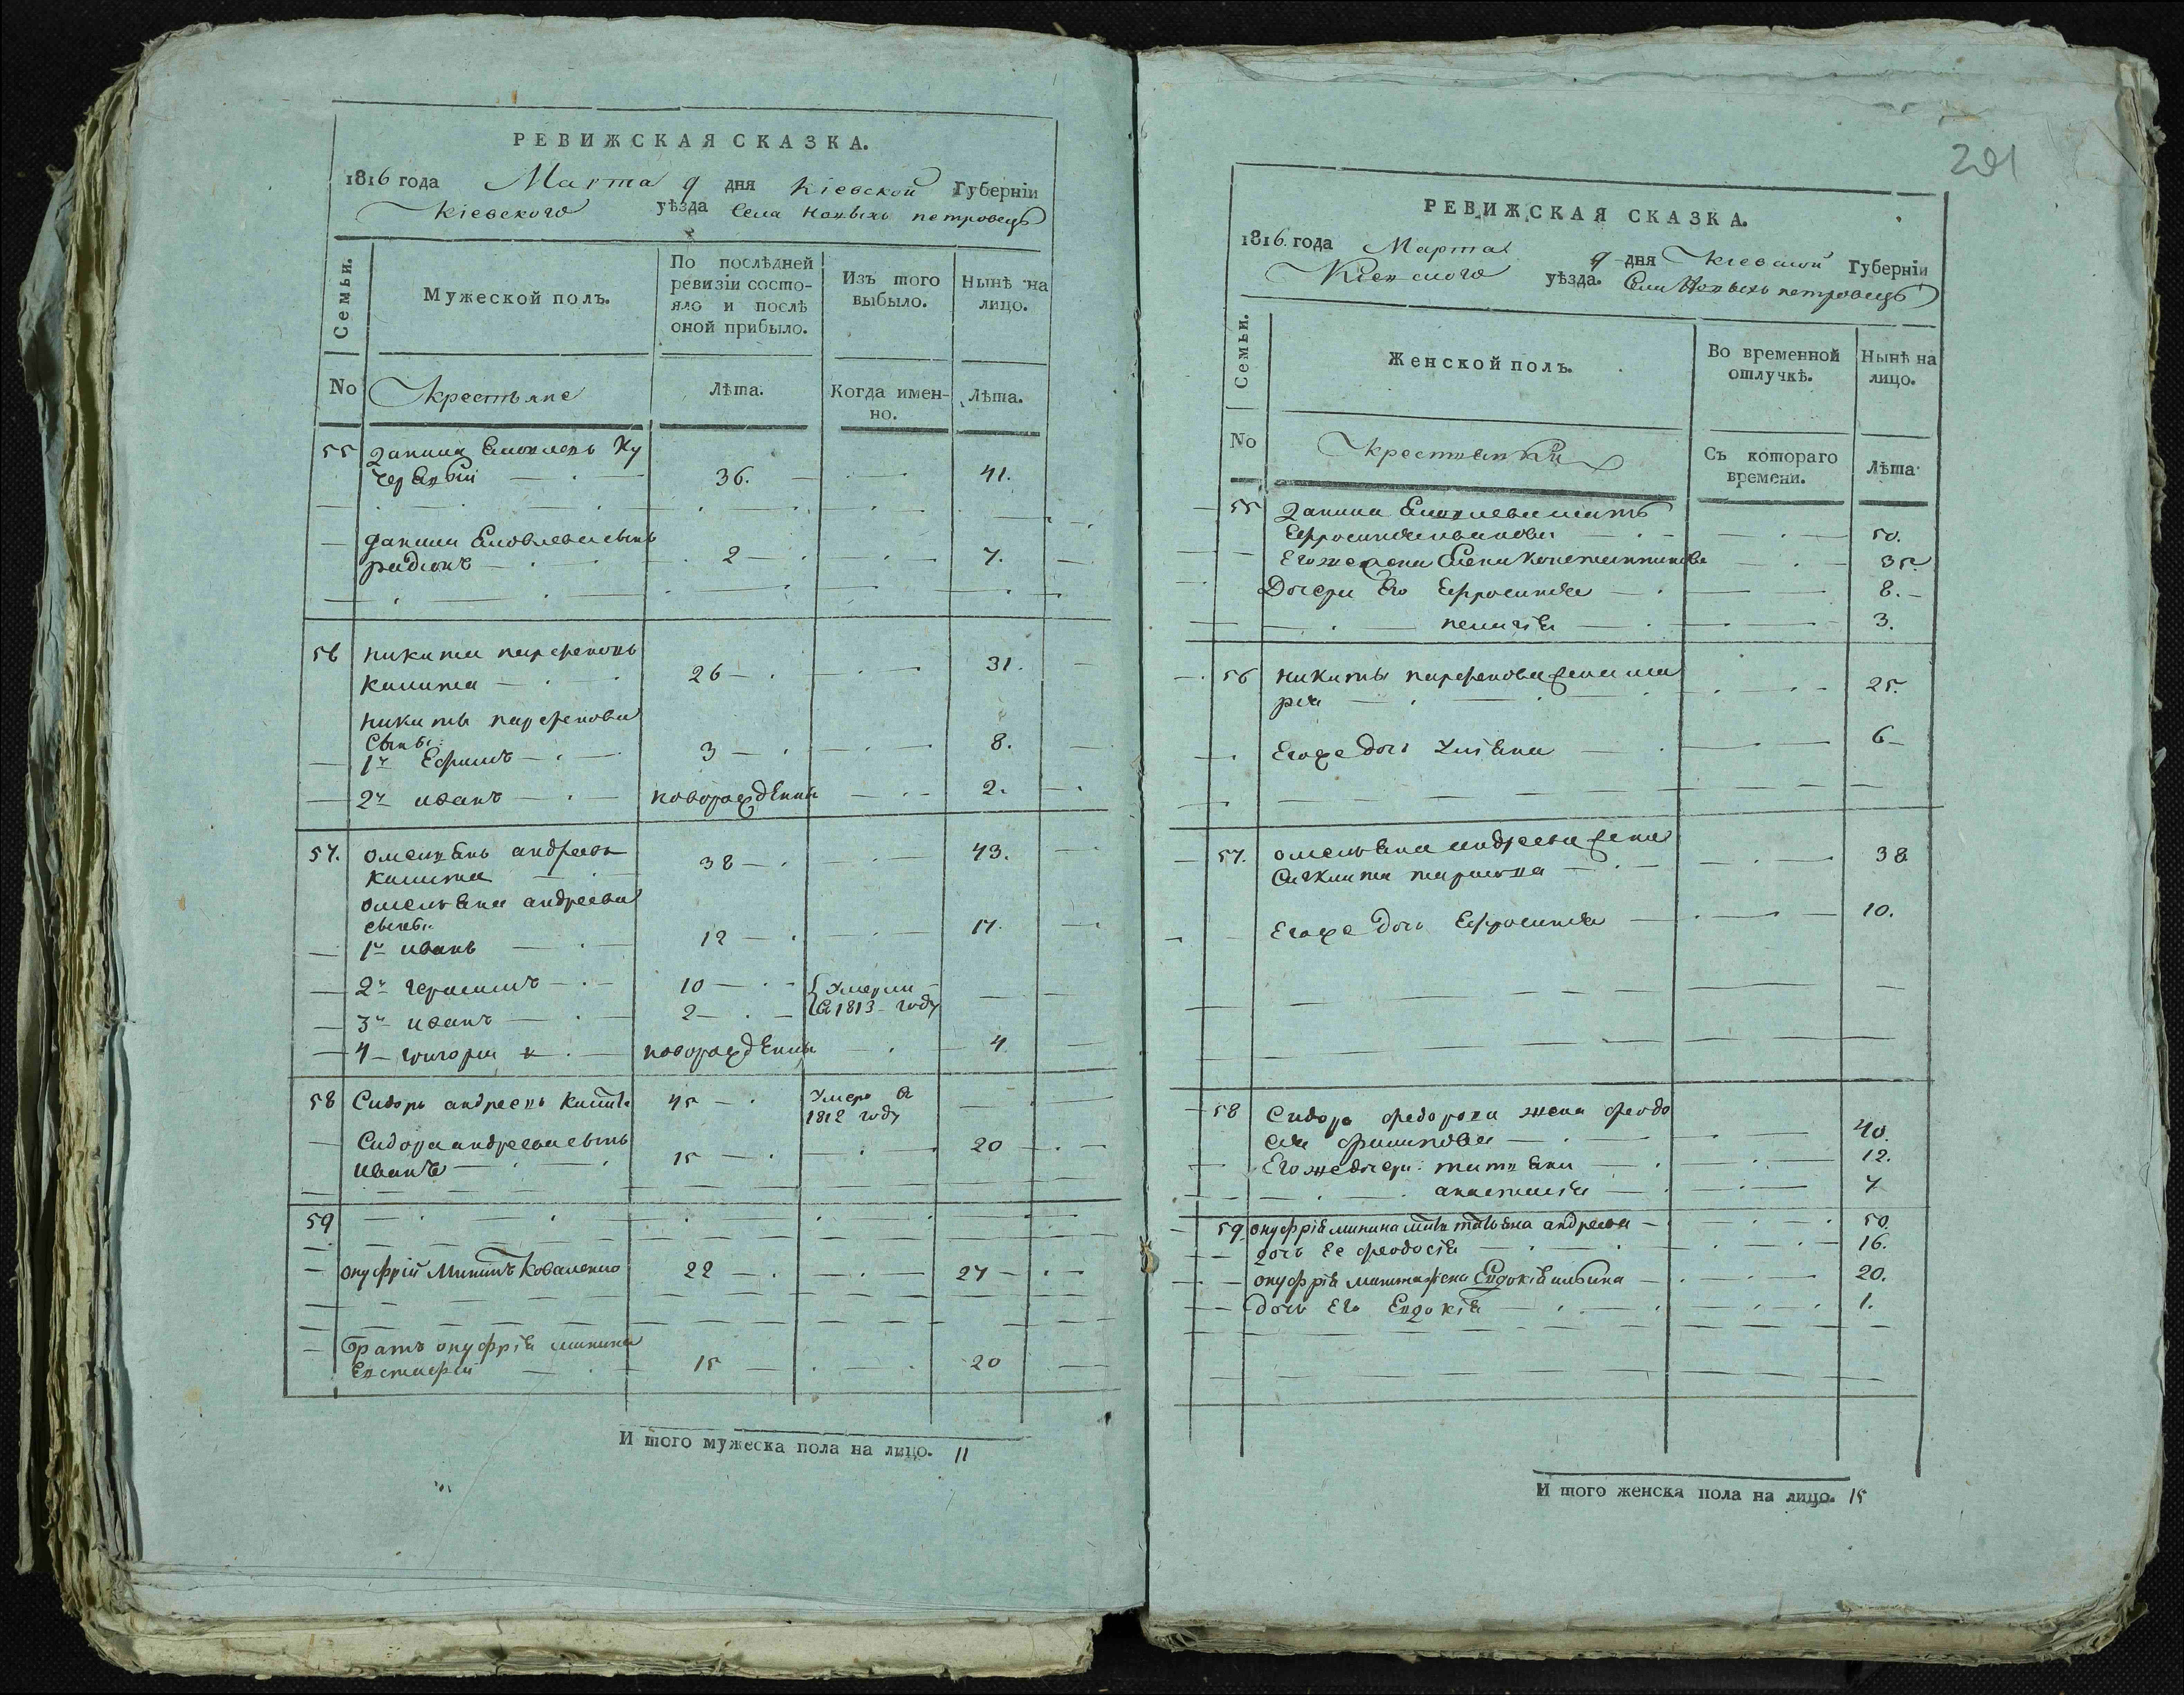 РЕВИЖСКАЯ СКАЗКА.
1816 года Марта 9 дня Кіевской Губерніи
Кіевского уѣзда Села Новыхъ петровецъ
Семьи.
Мужеской полъ.
По послѣдней ревизіи состояло и послѣ оной прибыло.
Изъ того выбыло.
Нынѣ на лицо.
No Крестьяне Лѣта. Когда именно. Лѣта.
55 Данила Яковлевъ Ку
черявый 36. 41.
Данила Яковлева сынъ
радионъ 2 7.
56 никита парфеновъ
Калита 26 31.
никиты парфенова
Сыны:
1й Ефимъ 3 8.
2й иванъ новорожденный 2.
57. омельянъ андреевъ
калита 38 43.
омельяна андреева
сыны:
1й иванъ 12 17.
2й герасимъ 10 Умерли
3й иванъ 2 в 1813 году
4 григорий новорожденный 4
58 Сидоръ андреевъ Калита 45 Умеръ в
1812 году
Сидора андреева сынъ
иванъ 15 20
59
онуфрій Мининъ Коваленко 22 27
братъ онуфрія минина
Евстафий 15 20
И того мужеска пола на лицо. 11
201
РЕВИЖСКАЯ СКАЗКА.
1816 года Марта 9 дня Кіевской Губерніи
Кіевского уѣзда. Села Новыхъ петровецъ
Семьи.
Женской полъ.
Во временной отлучкѣ.
Нынѣ на лицо.
No Крестьянки Съ котораго времени. Лѣта.
55 Данила Яковлева мать
Ефросиния иванова 50.
Его жена Елена Константинова 35.
Дочери Его Ефросиния 8.
пелагия 3.
56 никиты парфенова жена ма
рия 25.
Егоже дочь Улияна 6
57. омельяна андреева жена
карпова 38
Егоже дочь Ефросиния 10.
58 Сидора федорова жена феодо
сия филипова 40.
Его же дочери: татияна 12.
анастасия 7
59 онуфрія минина мать татьяна андреева 50.
дочь Ее феодосія 16.
онуфрія минина жена Евдокія ильина 20.
дочь Его Евдокія 1.
И того женска пола на лицо. 15